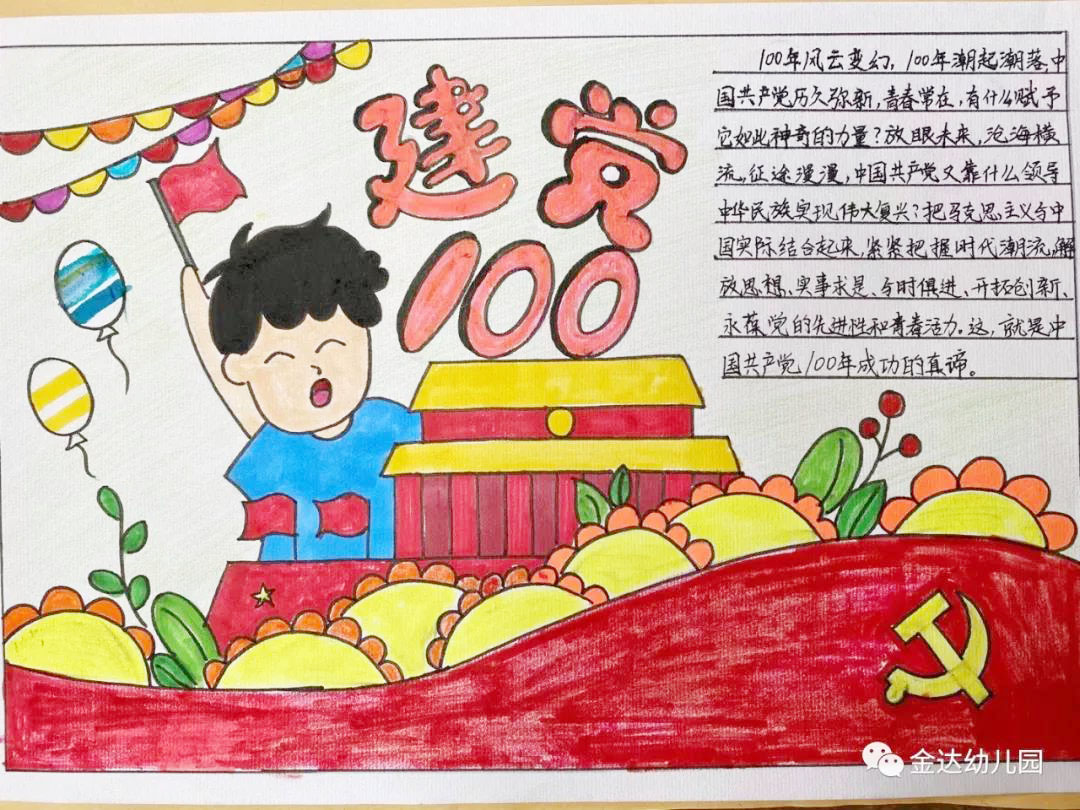 建党
100
100年风云变幻，100年潮起潮落，中
国共产党历久弥新，青春常在，有什么赋予
它如此神奇的力量？放眼未来，沧海横
流，征途漫漫，中国共产党又靠什么领导
中华民族实现伟大复兴？把马克思主义与中
国实际结合起来，紧紧把握时代潮流，解
放思想、实事求是、与时俱进、开拓创新、
永葆党的先进性和青春活力。这，就是中
国共产党100年成功的真谛。
金达幼儿园